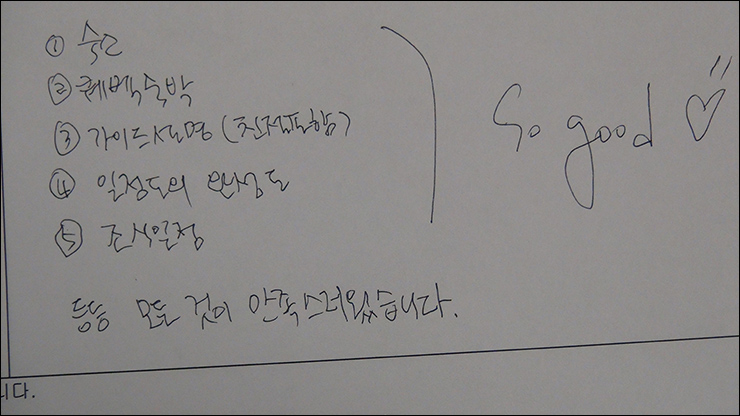 ① 숙소
② 퀘백숙박
③ 가이드설명 (친절포함)
④ 일정표의 완성도
⑤ 조식일정
So good ♡"
등등 모든 것이 만족스러웠습니다.
니다.